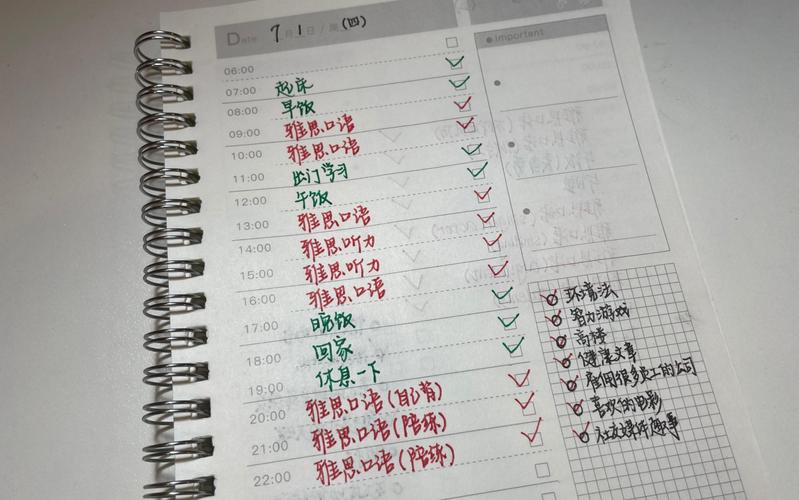 Date 7月1日/周(四)
06:00
07:00 起床
08:00 早饭
09:00 雅思口语
10:00 雅思口语
11:00 出门学习
12:00 午饭
13:00 雅思口语
14:00 雅思听力
15:00 雅思听力
16:00 雅思口语
17:00 晚饭
18:00 回家
19:00 休息一下
20:00 雅思口语(自己背)
21:00 雅思口语(陪练)
22:00 雅思口语(陪练)
important
环境法
智力游戏
高楼
健康文章
雇佣很多员工的公司
喜欢的电影